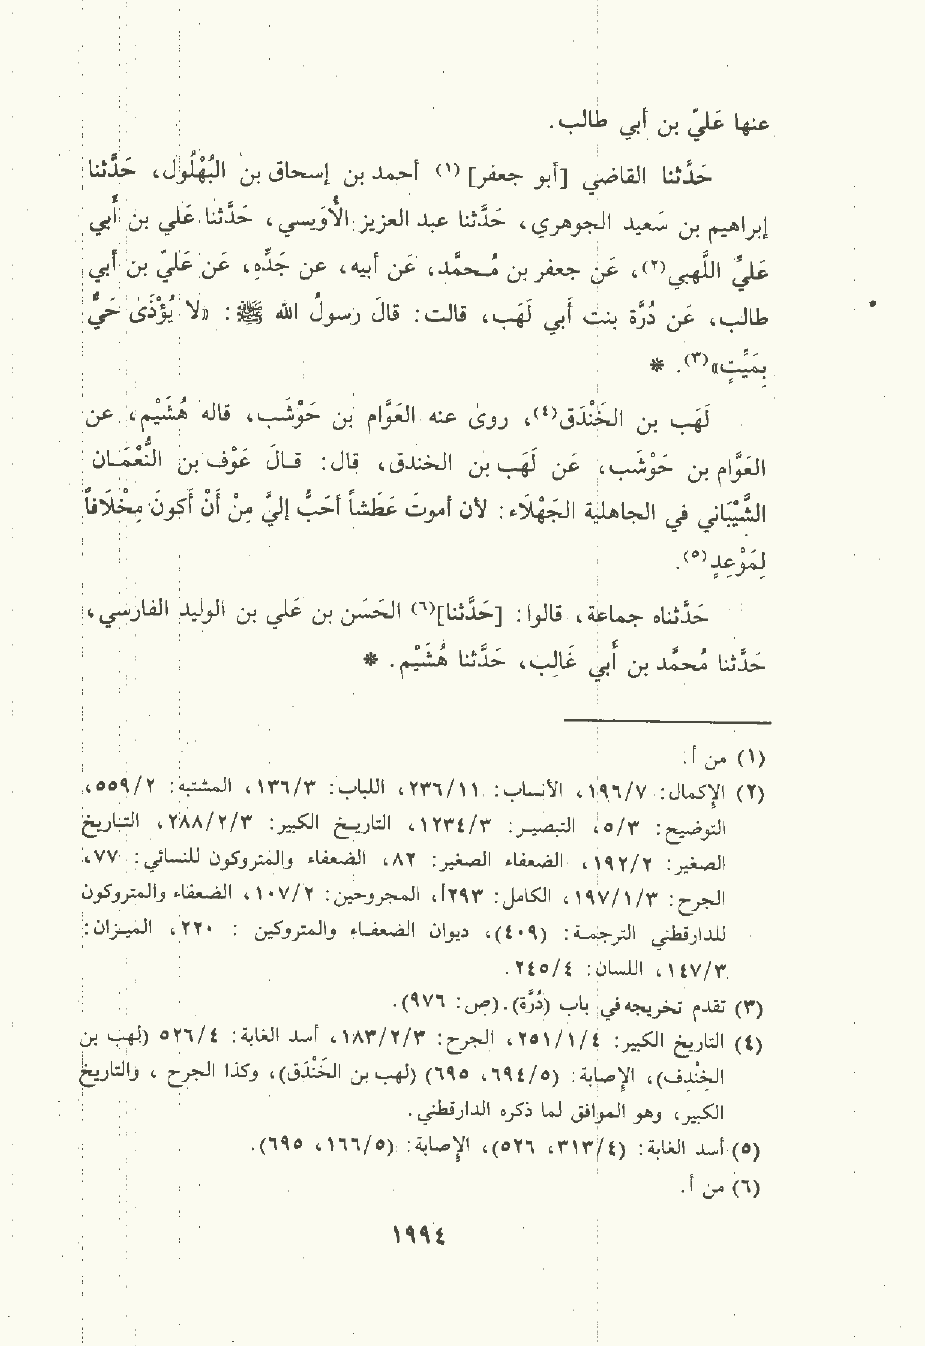 عنها عَليّ بن أبي طالب.
حَدَّثنا القاضي [أبو جعفر] (١) أحمد بن إسحاق بن البُهْلُول، حَدَّثنا
إبراهيم بن سَعيد الجوهري، حَدَّثنا عبد العزيز الأُوَيسي، حَدَّثنا عَلي بن أَبي
عَليٍّ اللَّهبي(٢)، عَن جعفر بن مُحمَّد، عَن أبيه، عن جَدِّهِ، عَن عَليّ بن أبي
طالب، عَن دُرَّة بنت أَبي لَهَب، قالت: قالَ رسولُ الله ﷺ: «لا يُؤْذَىٰ حَيٌّ
بِمَيِّتٍ»(٣). *
لَهَب بن الخَنْدَق(٤)، روىٰ عنه العَوَّام بن حَوْشَب، قاله هُشَيْم، عن
العَوَّام بن حَوْشَب، عَن لَهَب بن الخندق، قال: قـالَ عَوْف بن النُّعْمَـان
الشَّيْبَاني في الجاهلية الجَهْلَاء: لأن أموتَ عَطَشاً أحَبُّ إليَّ مِنْ أَنْ أكونَ مِخْلَافاً
لِمَوْعِدٍ(٥).
حَدَّثناه جماعة، قالوا: [حَدَّثنا](٦) الحَسَن بن عَلي بن الوليد الفارسي،
حَدَّثنا مُحمَّد بن أَبي غَالِب، حَدَّثنا هُشَيْم. *
(١) من أ.
(٢) الإكمال: ١٩٦/٧، الأنساب: ٢٣٦/١١، اللباب: ١٣٦/٣، المشتبه: ٥٥٩/٢،
التوضيح: ٥/٣، التبصير: ١٢٣٤/٣، التاريخ الكبير: ٢٨٨/٢/٣، التاريخ
الصغير: ١٩٢/٢، الضعفاء الصغير: ٨٢، الضعفاء والمتروكون للنسائي: ٧٧،
الجرح: ١٩٧/١/٣، الكامل: ٢٩٣أ، المجروحين: ١٠٧/٢، الضعفاء والمتروكون
للدارقطني الترجمـة: (٤٠٩)، ديوان الضعفاء والمتروكين : ٢٢٠، الميـزان:
١٤٧/٣، اللسان: ٢٤٥/٤.
(٣) تقدم تخريجه في باب (دُرَّة).(ص: ٩٧٦).
(٤) التاريخ الكبير: ٢٥١/١/٤، الجرح: ١٨٣/٢/٣، أسد الغابة: ٥٢٦/٤ (لهب بن
الخنْدِف)، الإصابة: (٦٩٤/٥، ٦٩٥) (لهب بن الخَنْدَق)، وكذا الجرح ، والتاريخ
الكبير، وهو الموافق لما ذكره الدارقطني.
(٥) أسد الغابة: (٣١٣/٤، ٥٢٦)، الإصابة: (١٦٦/٥، ٦٩٥).
(٦) من أ.
١٩٩٤